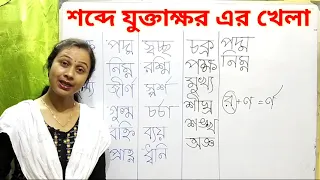 শব্দে যুক্তাক্ষর এর খেলা
পদ্ম স্বচ্ছ চক্র পদ্ম
নিম্ন রশ্মি পক্ষ নিম্ন
জীর্ণ স্পর্শ মুখ্য
গুল্ম চর্চা শীঘ্র
বহ্নি ব্যয় শঙ্খ
ধ্বনি অজ্ঞ